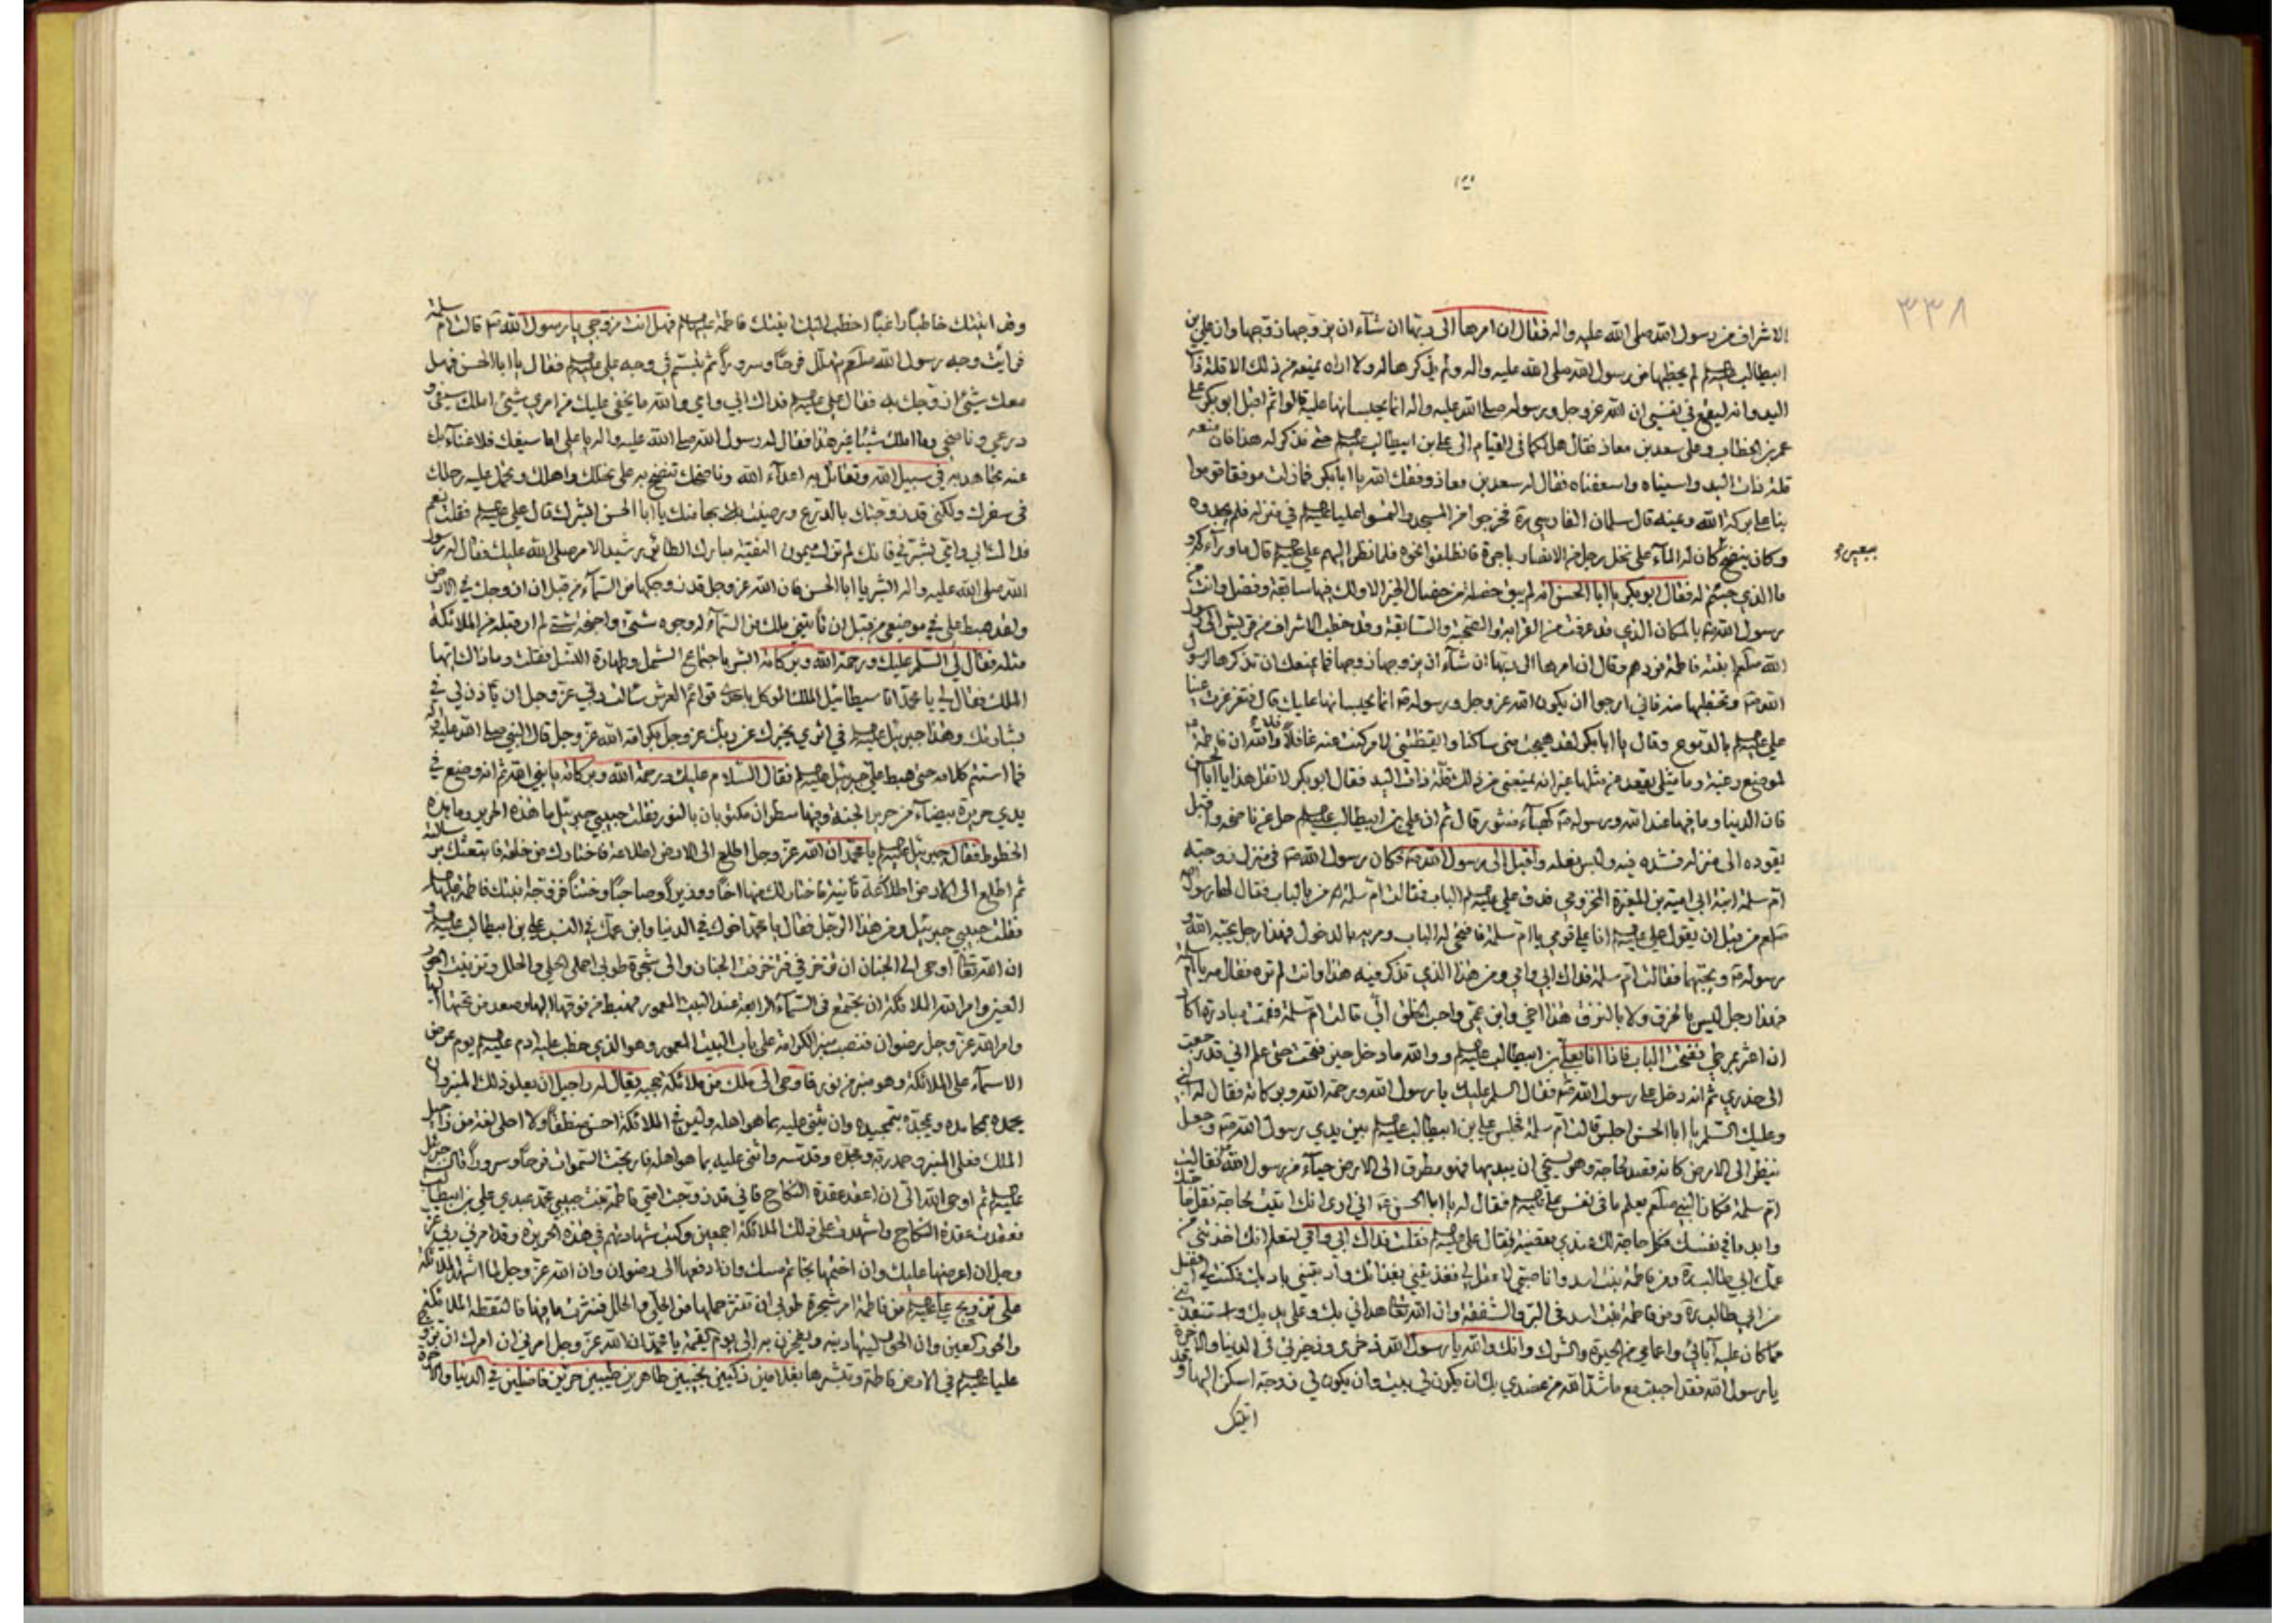 ٣٣٨
الاشراف من رسول الله صلى الله عليه واله فقال ان امرها الى ربها ان شآء ان يزوجها زوجها وان علي بن
ابيطالب عليه السلم لم يخطبها من رسول الله صلى الله عليه واله ولم يذكرها له ولا اراه يمنعه من ذلك الا قلة ذات
اليد وانه ليقع في نفسي ان الله عز وجل ورسوله صلى الله عليه واله انما يحبسانها عليه قالوا ثم اقبل ابو بكر على
عمر بن الخطاب وعلى سعد بن معاذ فقال هل لكما في القيام الى علي بن ابيطالب عليه السلم حتى نذكر له هذا فان منعه
قلة ذات اليد واسيناه واسعفناه فقال له سعد بن معاذ وفقك الله يا ابا بكر فما زلت موفقا قوموا
بنا على بركة الله وعينه قال سلمان الفارسي ره فخرجوا من المسجد والتمسوا عليا عليه السلم في منزله فلم يجدوه
وكان ينضح كان له المآء على نخل رجل من الانصار باجرة فانطلقوا نحوه فلما نظر اليهم علي عليه السلم قال ما ورآءكم و
ببعير
ما الذي جئتم له فقال ابو بكر يا ابا الحسن انه لم يبق خصلة من خصال الخير الا ولك فيها سابقة وفضل وانت من
رسول الله ص بالمكان الذي قد عرفت من القرابة والصحبة والسابقة وقد خطب الاشراف من قريش الى رسول
الله صلعم ابنته فاطمة فردهم وقال ان امرها الى ربها ان شآء ان يزوجها زوجها فما يمنعك ان تذكرها لرسول
الله ص وتخطبها منه فاني ارجوا ان يكون الله عز وجل ورسوله ص انما يحبسانها عليك قال فتغرغرت عينا
علي عليه السلم بالدموع وقال يا ابا بكر لقد هيجت مني ساكنا وايقظتني لامر كنت عنه غافلا والله ان فاطمة
لموضع رغبة وما مثلي يقعد عن مثلها غير انه يمنعني من ذلك قلة ذات اليد فقال ابو بكر لا تقل هذا يا ابا الحسن
فان الدنيا وما فيها عند الله ورسوله ص كهبآء منثور قال ثم ان علي بن ابيطالب عليه السلم حل عن ناضحه واقبل
يقوده الى منزله فشده فيه ولبس نعله واقبل الى رسول الله ص فكان رسول الله ص في منزل زوجته
ام سلمة ابنة ابي امية بن المغيرة المخزومي فدق علي عليه السلم الباب فقالت ام سلمة من بالباب فقال لها رسول الله
صلعم من قبل ان يقول علي عليه السلم انا علي قومي يا ام سلمة فافتحي له الباب ومريه بالدخول فهذا رجل يحبه الله و
رسوله ص ويحبهما فقالت ام سلمة فداك ابي وامي ومن هذا الذي تذكر فيه هذا وانت لم تره فقال مه يا ام سلمة
فهذا رجل ليس بالخرق ولا بالنزق هذا اخي وابن عمي واحب الخلق الي قالت ام سلمة فقمت مبادرة اكاد
ان اعثر بمرطي ففتحت الباب فاذا انا بعلي بن ابيطالب عليه السلم ووالله ما دخل حين فتحت حتى علم اني قد رجعت
الى خدري ثم انه دخل على رسول الله ص فقال السلم عليك يا رسول الله ورحمة الله وبركاته فقال له النبي
وعليك السلم يا ابا الحسن اجلس قالت ام سلمة فجلس علي بن ابيطالب عليه السلم بين يدي رسول الله ص وجعل
ينظر الى الارض كانه قصد لحاجة وهو يستحي ان يبديها فهو مطرق الى الارض حيآء من رسول الله فقالت
ام سلمة فكان النبي صلعم يعلم ما في نفس علي عليه السلم فقال له يا ابا الحسن اني ارى انك اتيت لحاجة فقل حاجتك
وابد ما في نفسك فكل حاجة لك عندي مقضية فقال علي عليه السلم فقلت فداك ابي وامي لتعلم انك اخذتني من
عمك ابي طالب ره ومن فاطمة بنت اسد وانا صبي لا عقل لي فغذيتني بغذائك وادبتني بادبك فكنت لي افضل
من ابي طالب ره ومن فاطمة بنت اسد في البر والشفقة وان الله تعالى هداني بك وعلى يديك واستنقذني
مما كان عليه آبائي واعمامي من الحيرة والشرك وانك والله يا رسول الله ذخري وذخيرتي في الدنيا والآخرة
يا رسول الله فقد احببت مع ما شد الله من عضدي بك ان يكون لي بيت وان يكون لي زوجة اسكن اليها وقد
اتيتك
وقد اتيتك خاطبا راغبا اخطب اليك ابنتك فاطمة عليها السلم فهل انت مزوجي يا رسول الله ص قالت ام سلمة
فرايت وجه رسول الله صلعم يتهلل فرحا وسرورا ثم تبسم في وجه علي عليه السلم فقال يا ابا الحسن فهل
معك شيئ ازوجك به فقال علي عليه السلم فداك ابي وامي والله ما يخفى عليك من امري شيئ املك سيفي و
درعي وناضحي وما املك شيئا غير هذا فقال له رسول الله صلى الله عليه واله يا علي اما سيفك فلا غنآء بك
عنه تجاهد به في سبيل الله وتقاتل به اعدآء الله وناضحك تنضح به على نخلك واهلك وتحمل عليه رحلك
في سفرك ولكني قد زوجتك بالدرع ورضيت بها منك يا ابا الحسن ابشرك قال علي عليه السلم فقلت نعم
فداك ابي وامي بشرني فانك لم تزل ميمون النقيبة مبارك الطائر رشيد الامر صلى الله عليك فقال له رسول
الله صلى الله عليه واله ابشر يا ابا الحسن فان الله عز وجل قد زوجكها من السمآء من قبل ان ازوجك في الارض
ولقد هبط علي في موضعي من قبل ان تاتيني ملك من السمآء له وجوه شتى واجنحة شتى لم ار قبله من الملائكة
مثله فقال لي السلم عليك ورحمة الله وبركاته ابشر باجتماع الشمل وطهارة النسل فقلت وما ذاك ايها
الملك فقال لي يا محمد انا سيطائيل الملك الموكل باحدى قوائم العرش سالت ربي عز وجل ان ياذن لي في
بشارتك وهذا جبرئيل عليه السلم في اثري يخبرك عن ربك عز وجل بكرامة الله عز وجل قال النبي صلى الله عليه واله
فما استتم كلامه حتى هبط علي جبرئيل عليه السلم فقال السلام عليك ورحمة الله وبركاته يا نبي الله ثم انه وضع في
يدي حريرة بيضآء من حرير الجنة وفيها سطران مكتوبان بالنور فقلت حبيبي جبرئيل ما هذه الحريرة وما هذه
الخطوط فقال جبرئيل عليه السلم يا محمد ان الله عز وجل اطلع الى الارض اطلاعة فاختارك من خلقه فابتعثك برسالته
ثم اطلع الى الارض اطلاعة ثانية فاختار لك منها اخا ووزيرا وصاحبا وختنا فزوجه ابنتك فاطمة عليها السلم
فقلت حبيبي جبرئيل ومن هذا الرجل فقال يا محمد اخوك في الدنيا وابن عمك في النسب علي بن ابيطالب عليه السلم و
ان الله تعالى اوحى الى الجنان ان تزخرفي فتزخرفت الجنان والى شجرة طوبى احملي الحلي والحلل وتزينت الحور
العين وامر الله الملائكة ان تجتمع في السمآء الرابعة عند البيت المعمور فهبط من فوقها اليها وصعد من تحتها اليها
وامر الله عز وجل رضوان فنصب منبر الكرامة على باب البيت المعمور وهو الذي خطب عليه ادم عليه السلم يوم عرض
الاسمآء على الملائكة وهو منبر من نور فاوحى الى ملك من ملائكة حجبه يقال له راحيل ان يعلو ذلك المنبر وان
يحمده بمحامده ويمجده بتمجيده وان يثني عليه بما هو اهله وليس في الملائكة احسن منطقا ولا احلى لغة من راحيل
الملك فعلى المنبر وحمد ربه ومجده وقدسه واثنى عليه بما هو اهله فارتجت السموات فرحا وسرورا قال جبرئيل
عليه السلم ثم اوحى الله الي ان اعقد عقدة النكاح فاني قد زوجت امتي فاطمة بنت حبيبي محمد عبدي علي بن ابيطالب
فعقدت عقدة النكاح واشهدت على ذلك الملائكة اجمعين وكتبت شهادتهم في هذه الحريرة وقد امرني ربي عز
وجل ان اعرضها عليك وان اختمها بخاتم مسك وان ادفعها الى رضوان وان الله عز وجل لما اشهد الملائكة
على تزويج علي عليه السلم من فاطمة امر شجرة طوبى ان تنثر حملها من الحلي والحلل فنثرت ما فيها فالتقطه الملائكة
والحور العين وان الحور ليتهادينه ويفخرن به الى يوم القيمة يا محمد ان الله عز وجل امرني ان امرك ان تزوج
عليا عليه السلم في الارض فاطمة وتبشرهما بغلامين زكيين نجيبين طاهرين طيبين خيرين فاضلين في الدنيا والآخرة